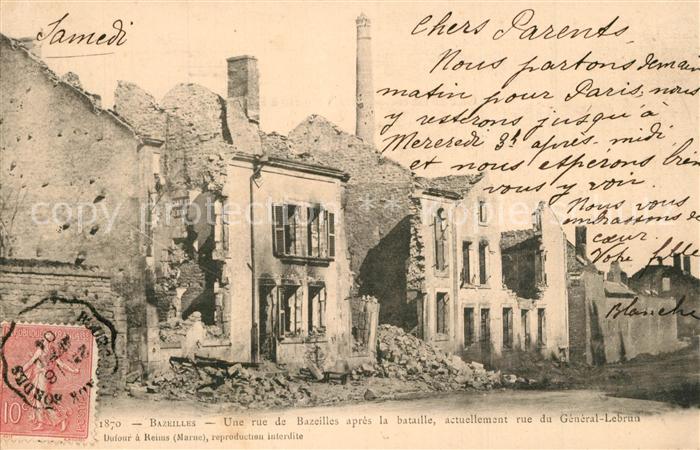 Samedi
Chers Parents,
Nous partons demain
matin pour Paris, nous
y resterons jusqu'à
Mercredi 3h après-midi
et nous espérons bien
vous y voir.
Nous vous
embrassons de
cœur
Votre fille
Blanche
copy protected
REPUBLIQUE FRANÇAISE
10c
POSTES
1870 — BAZEILLES — Une rue de Bazeilles après la bataille, actuellement rue du Général-Lebrun
Dufour à Reims (Marne), reproduction interdite